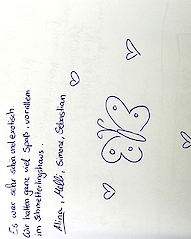 Es war sehr schön und exotisch.
Wir hatten ganz viel Spaß, vor allem
im Schmetterlingshaus.
Alina, Melli, Simone, Sebastian